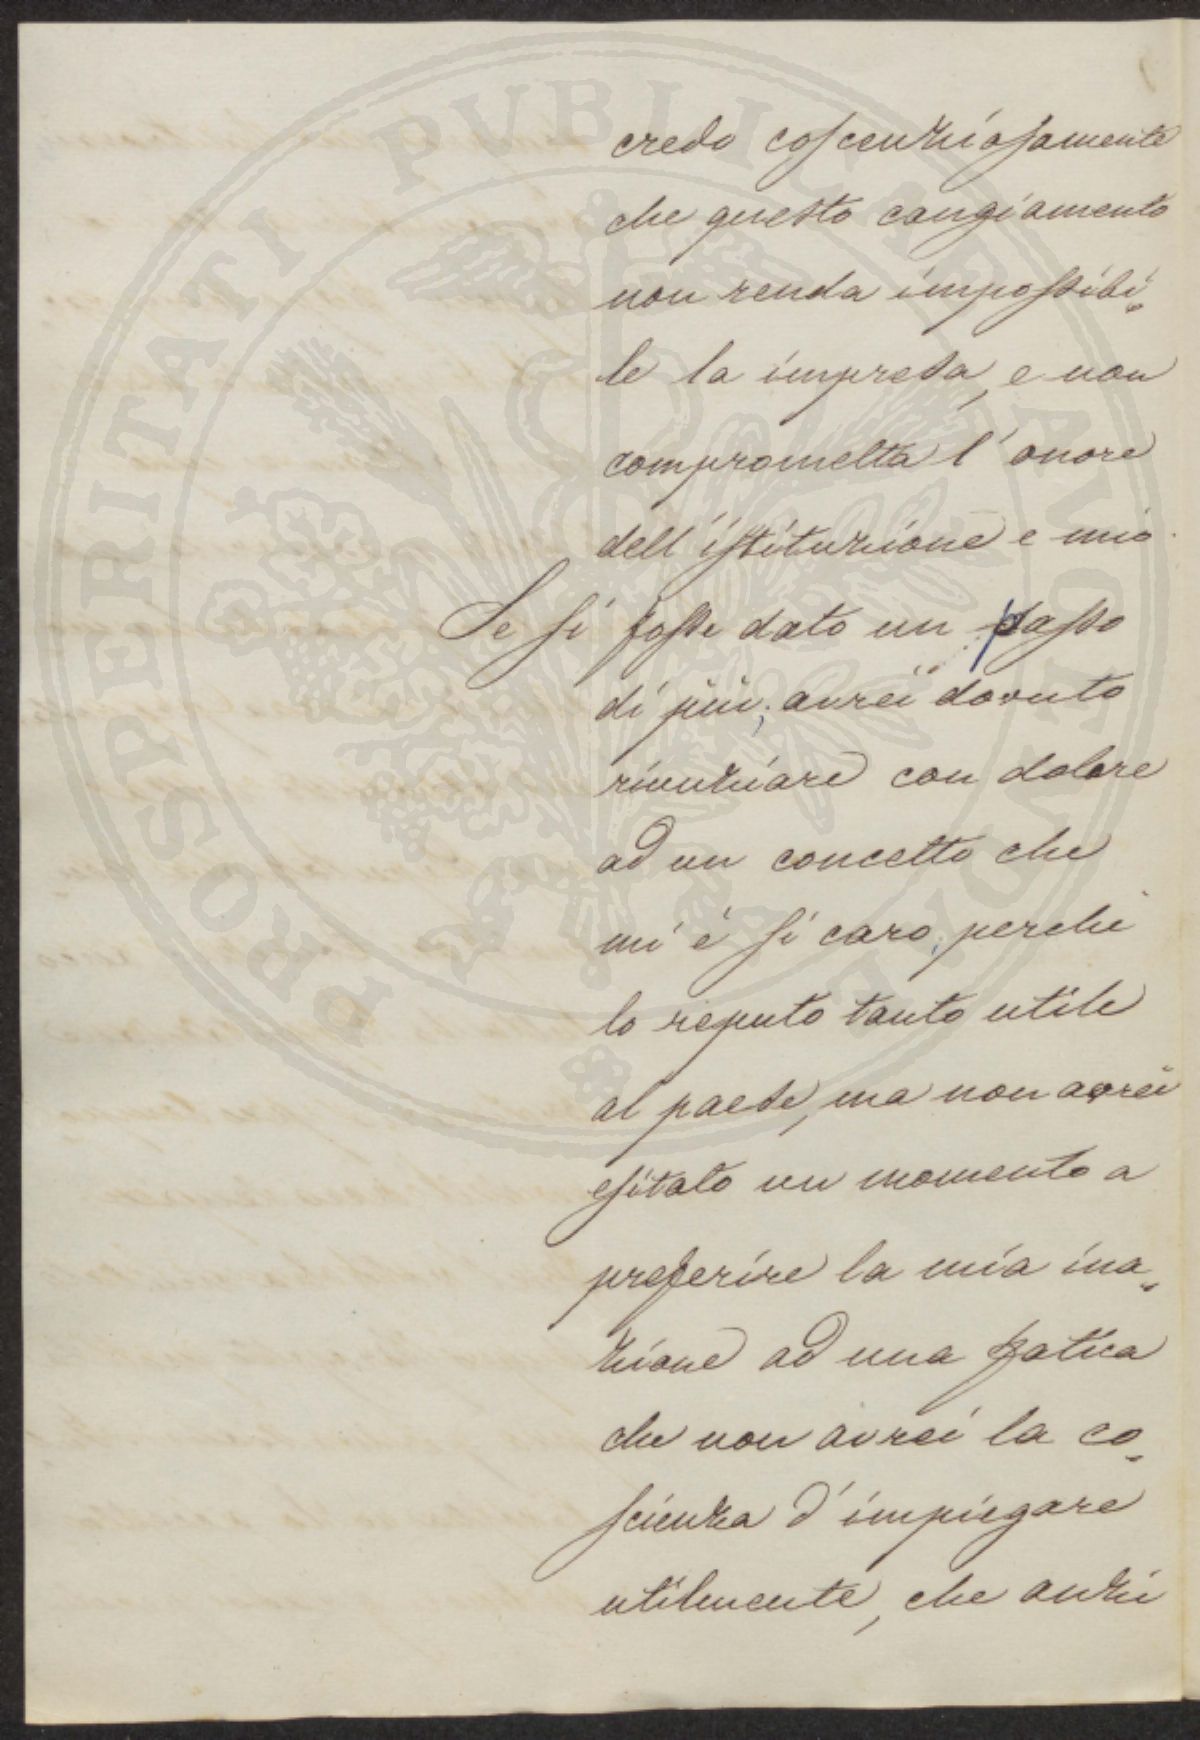 credo coscenziosamente
che questo cangiamento
non renda impossibi-
le la impresa, e non
comprometta l'onore
dell'istituzione e mio.
Se si fosse dato un passo
di più, avrei dovuto
rinunziare con dolore
ad un concetto che
mi è sì caro, perchè
lo reputo tanto utile
al paese, ma non avrei
esitato un momento a
preferire la mia ina-
zione ad una fatica
che non avrei la co-
scienza d'impiegare
utilmente, che anzi
PROSPERITATI PUBLICAE